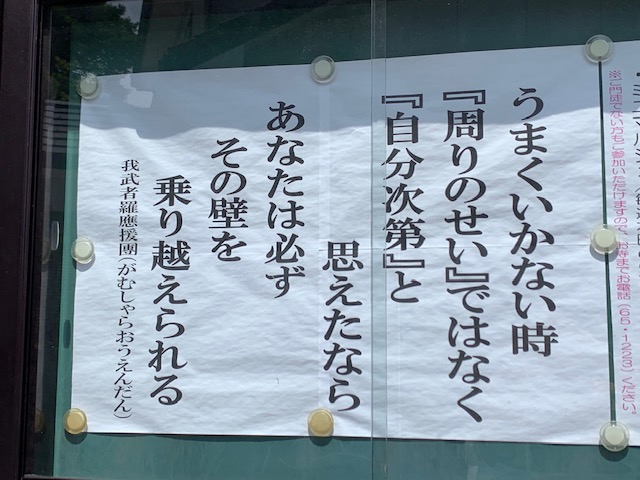 ※ご門徒でない方もご参加いただけますので、お寺までお電話(65・1223)ください。
うまくいかない時
『周りのせい』ではなく
『自分次第』と
思えたなら
あなたは必ず
その壁を
乗り越えられる
我武者羅應援團(がむしゃらおうえんだん)